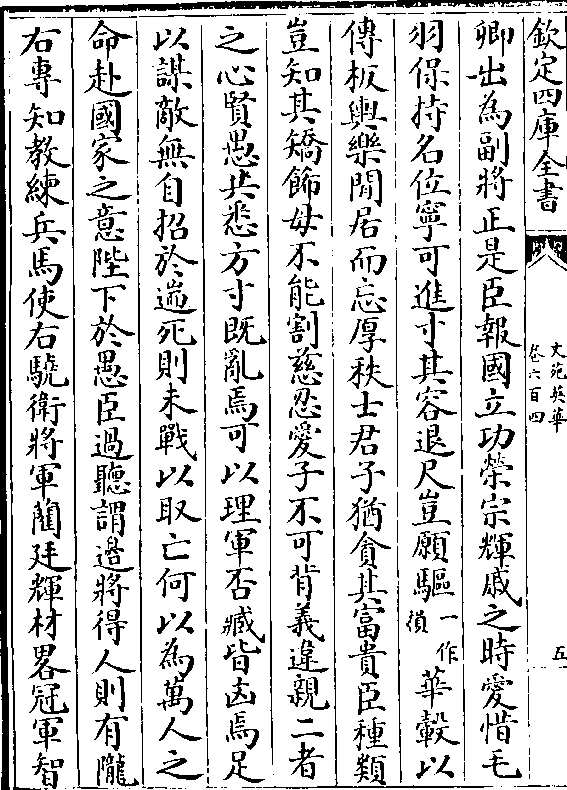 欽定四庫全書
文苑英華
卷六百四
五
卿出為副將正是臣報國立功榮宗輝戚之時愛惜毛
羽保持名位寧可進寸其容退尺豈願驅一作㩓華轂以
傳板輿樂閒居而忘厚秩士君子猶貪其富貴臣種類
豈知其矯飾母不能割慈忍愛子不可背義違親二者
之心賢愚共悉方寸既亂焉可以理軍否臧皆凶焉足
以謀敵無自招於遄死則未戰以取亡何以為萬人之
命赴國家之意陛下於愚臣過聽謂邊將得人則有隴
右專知教練兵馬使右驍衛將軍藺廷輝材畧冠軍智